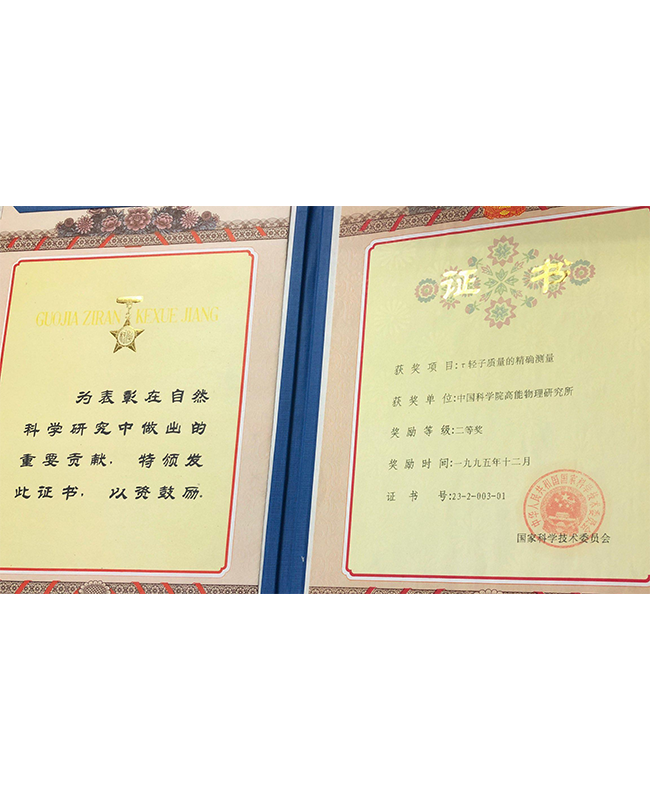 GUOJIA ZIRAN KEXUE JIANG
为表彰在自然
科学研究中做出的
重要贡献，特颁发
此证书，以资鼓励。
证书
获奖项目:τ轻子质量的精确测量
获奖单位:中国科学院高能物理研究所
奖励等级:二等奖
奖励时间:一九九五年十二月
证书号:23-2-003-01
中华人民共和国国家科学技术委员会
国家科学技术委员会